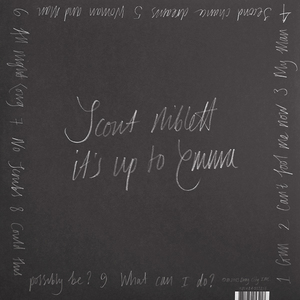 Scout Niblett
it's up to Emma
1 Gun 2 Can't fool me now 3 My Man
4 Second chance dreams 5 Woman and Man
6 All night long 7 No Scrubs 8 Could this
possibly be? 9 What can I do?